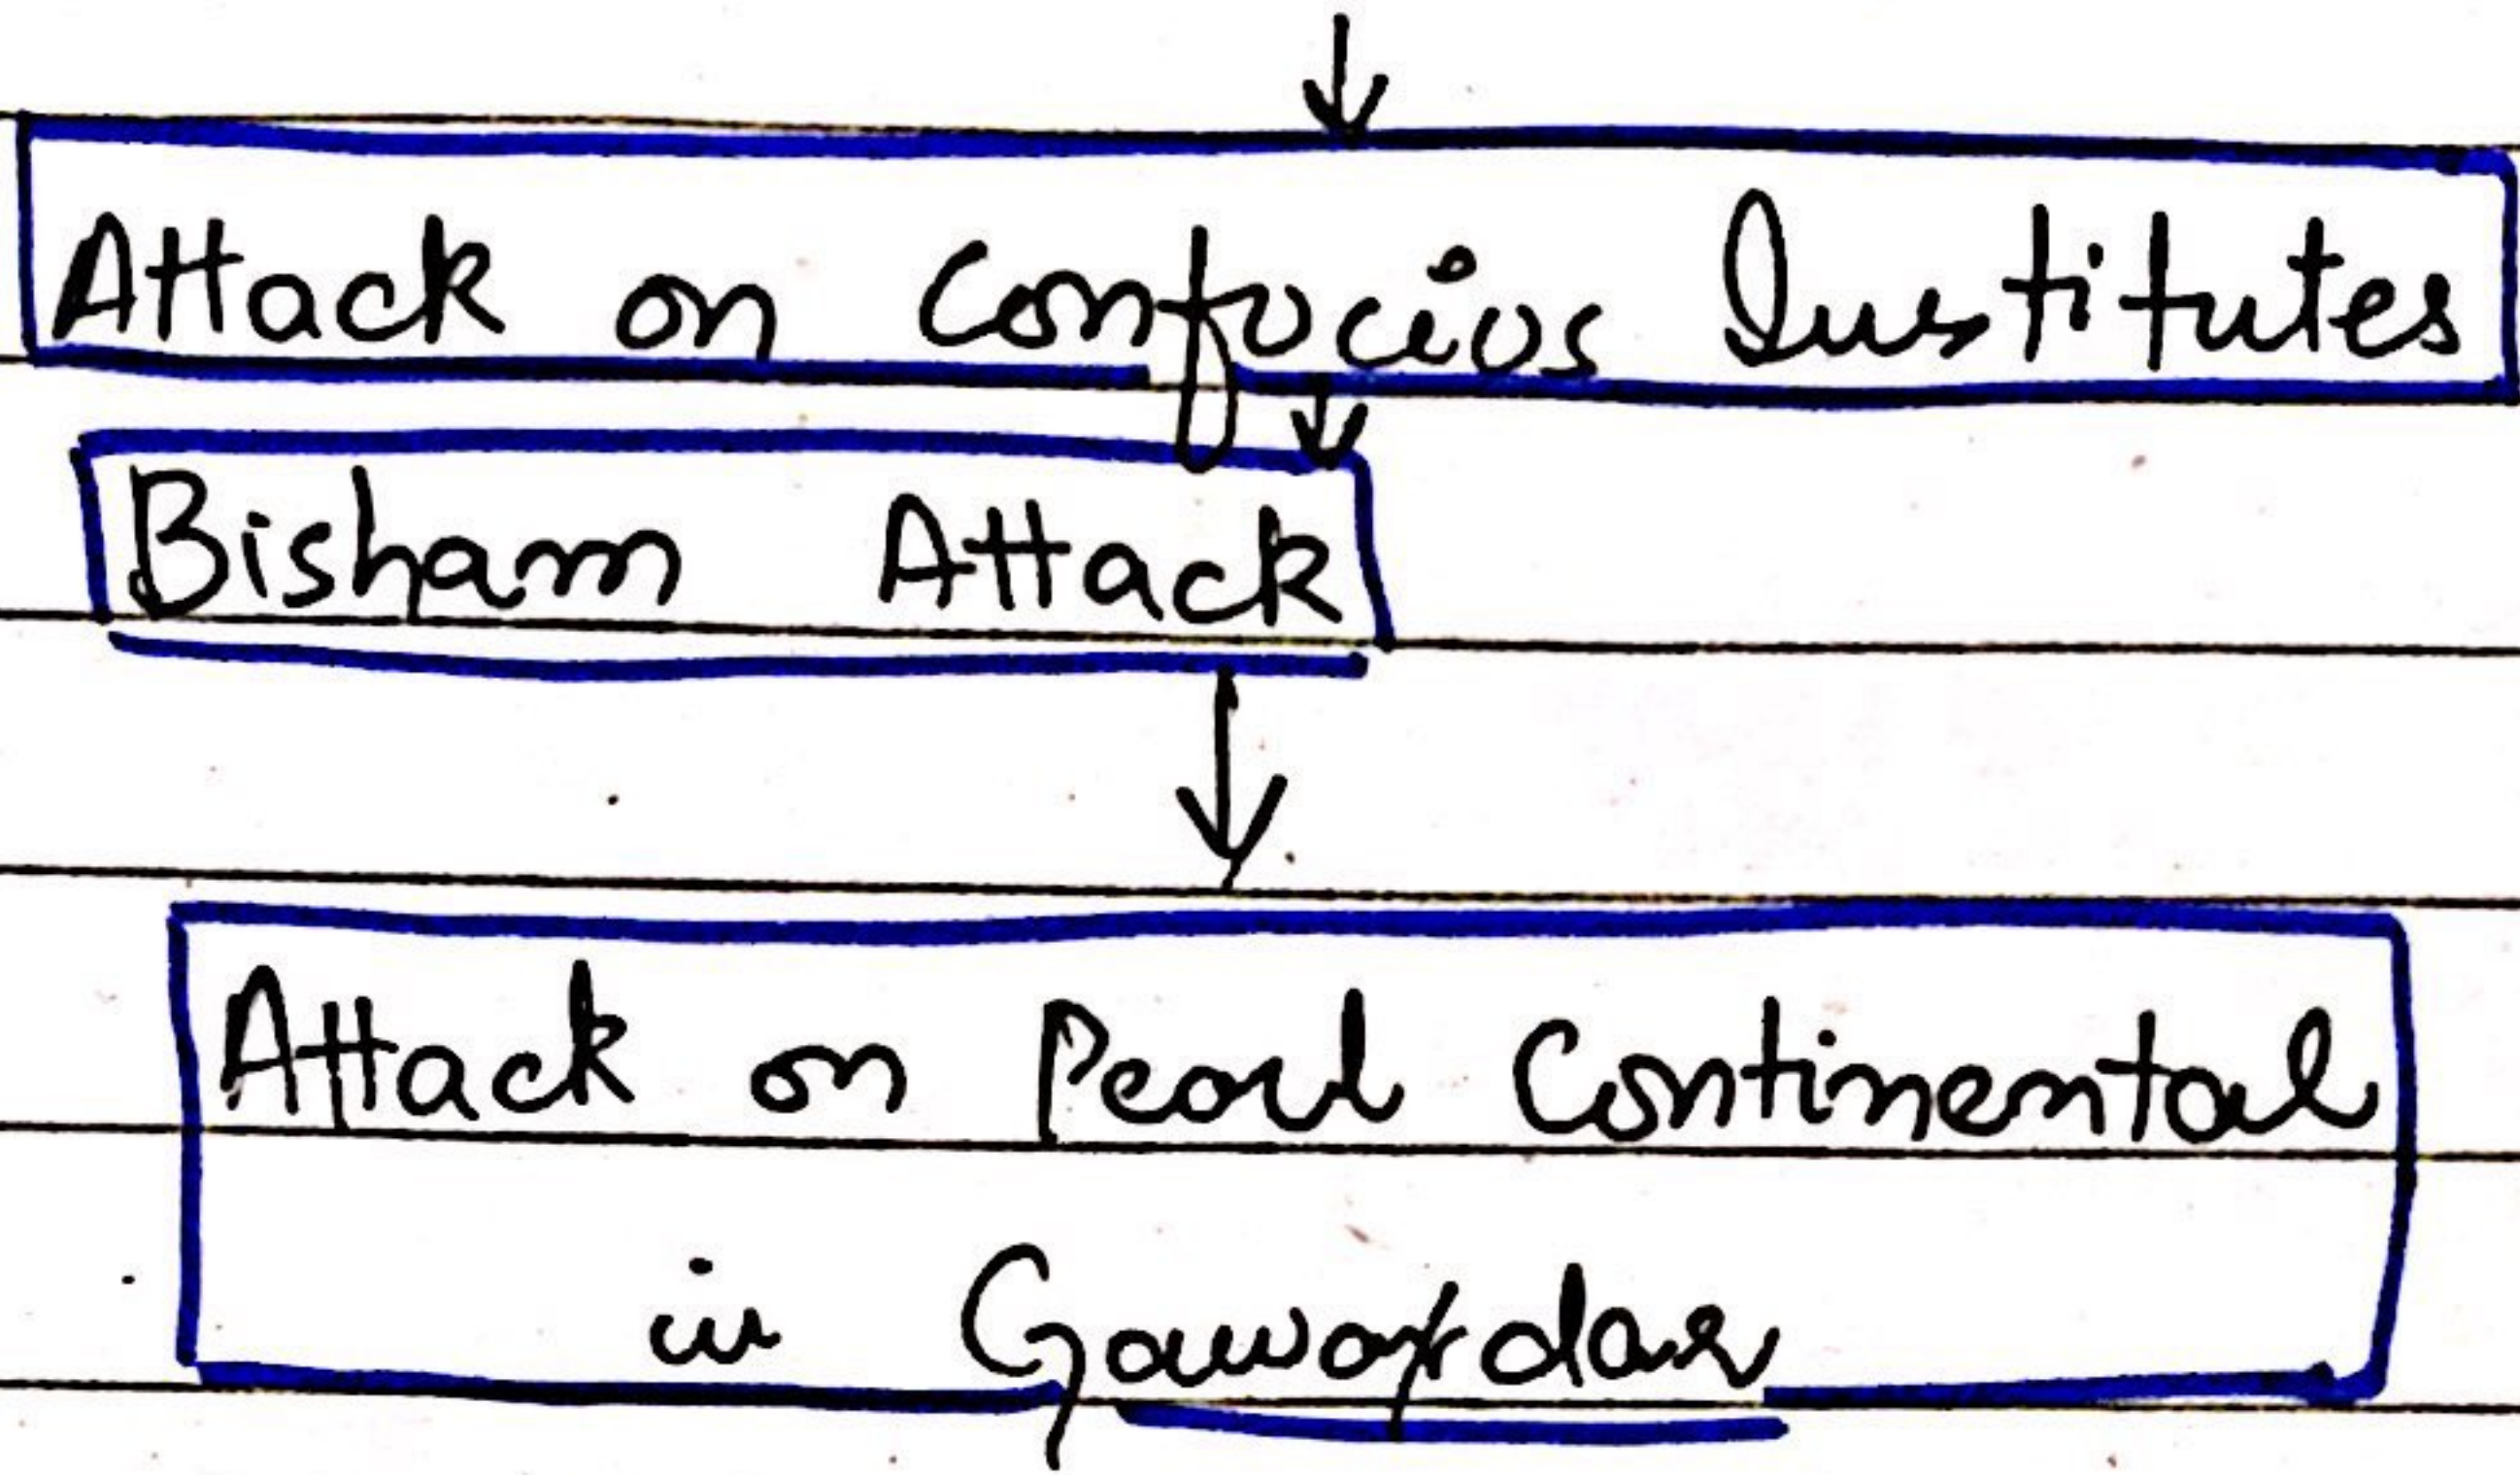 Attack on Confucius Institutes
Bisham Attack
Attack on Pearl Continental
in Gawardar